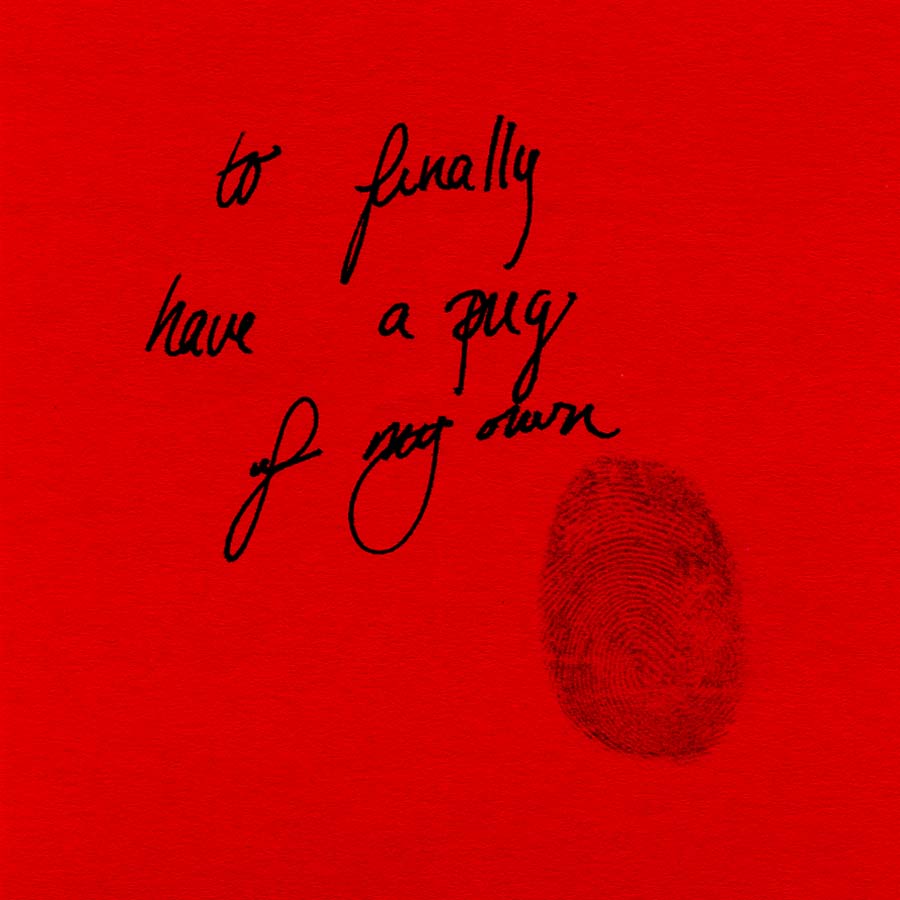 to finally
have a pug
of my own